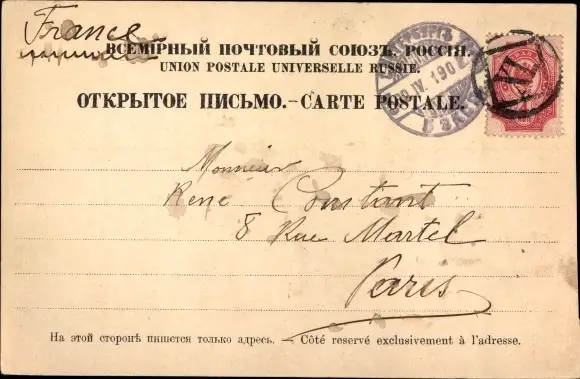 France
ВСЕМІРНЫЙ ПОЧТОВЫЙ СОЮЗЪ. РОССІЯ.
UNION POSTALE UNIVERSELLE RUSSIE.
ОТКРЫТОЕ ПИСЬМО.—CARTE POSTALE.
Monsieur
René Constant
8 Rue Martel
Paris
На этой сторонѣ пишется только адресъ. — Côté reservé exclusivement à l'adresse.